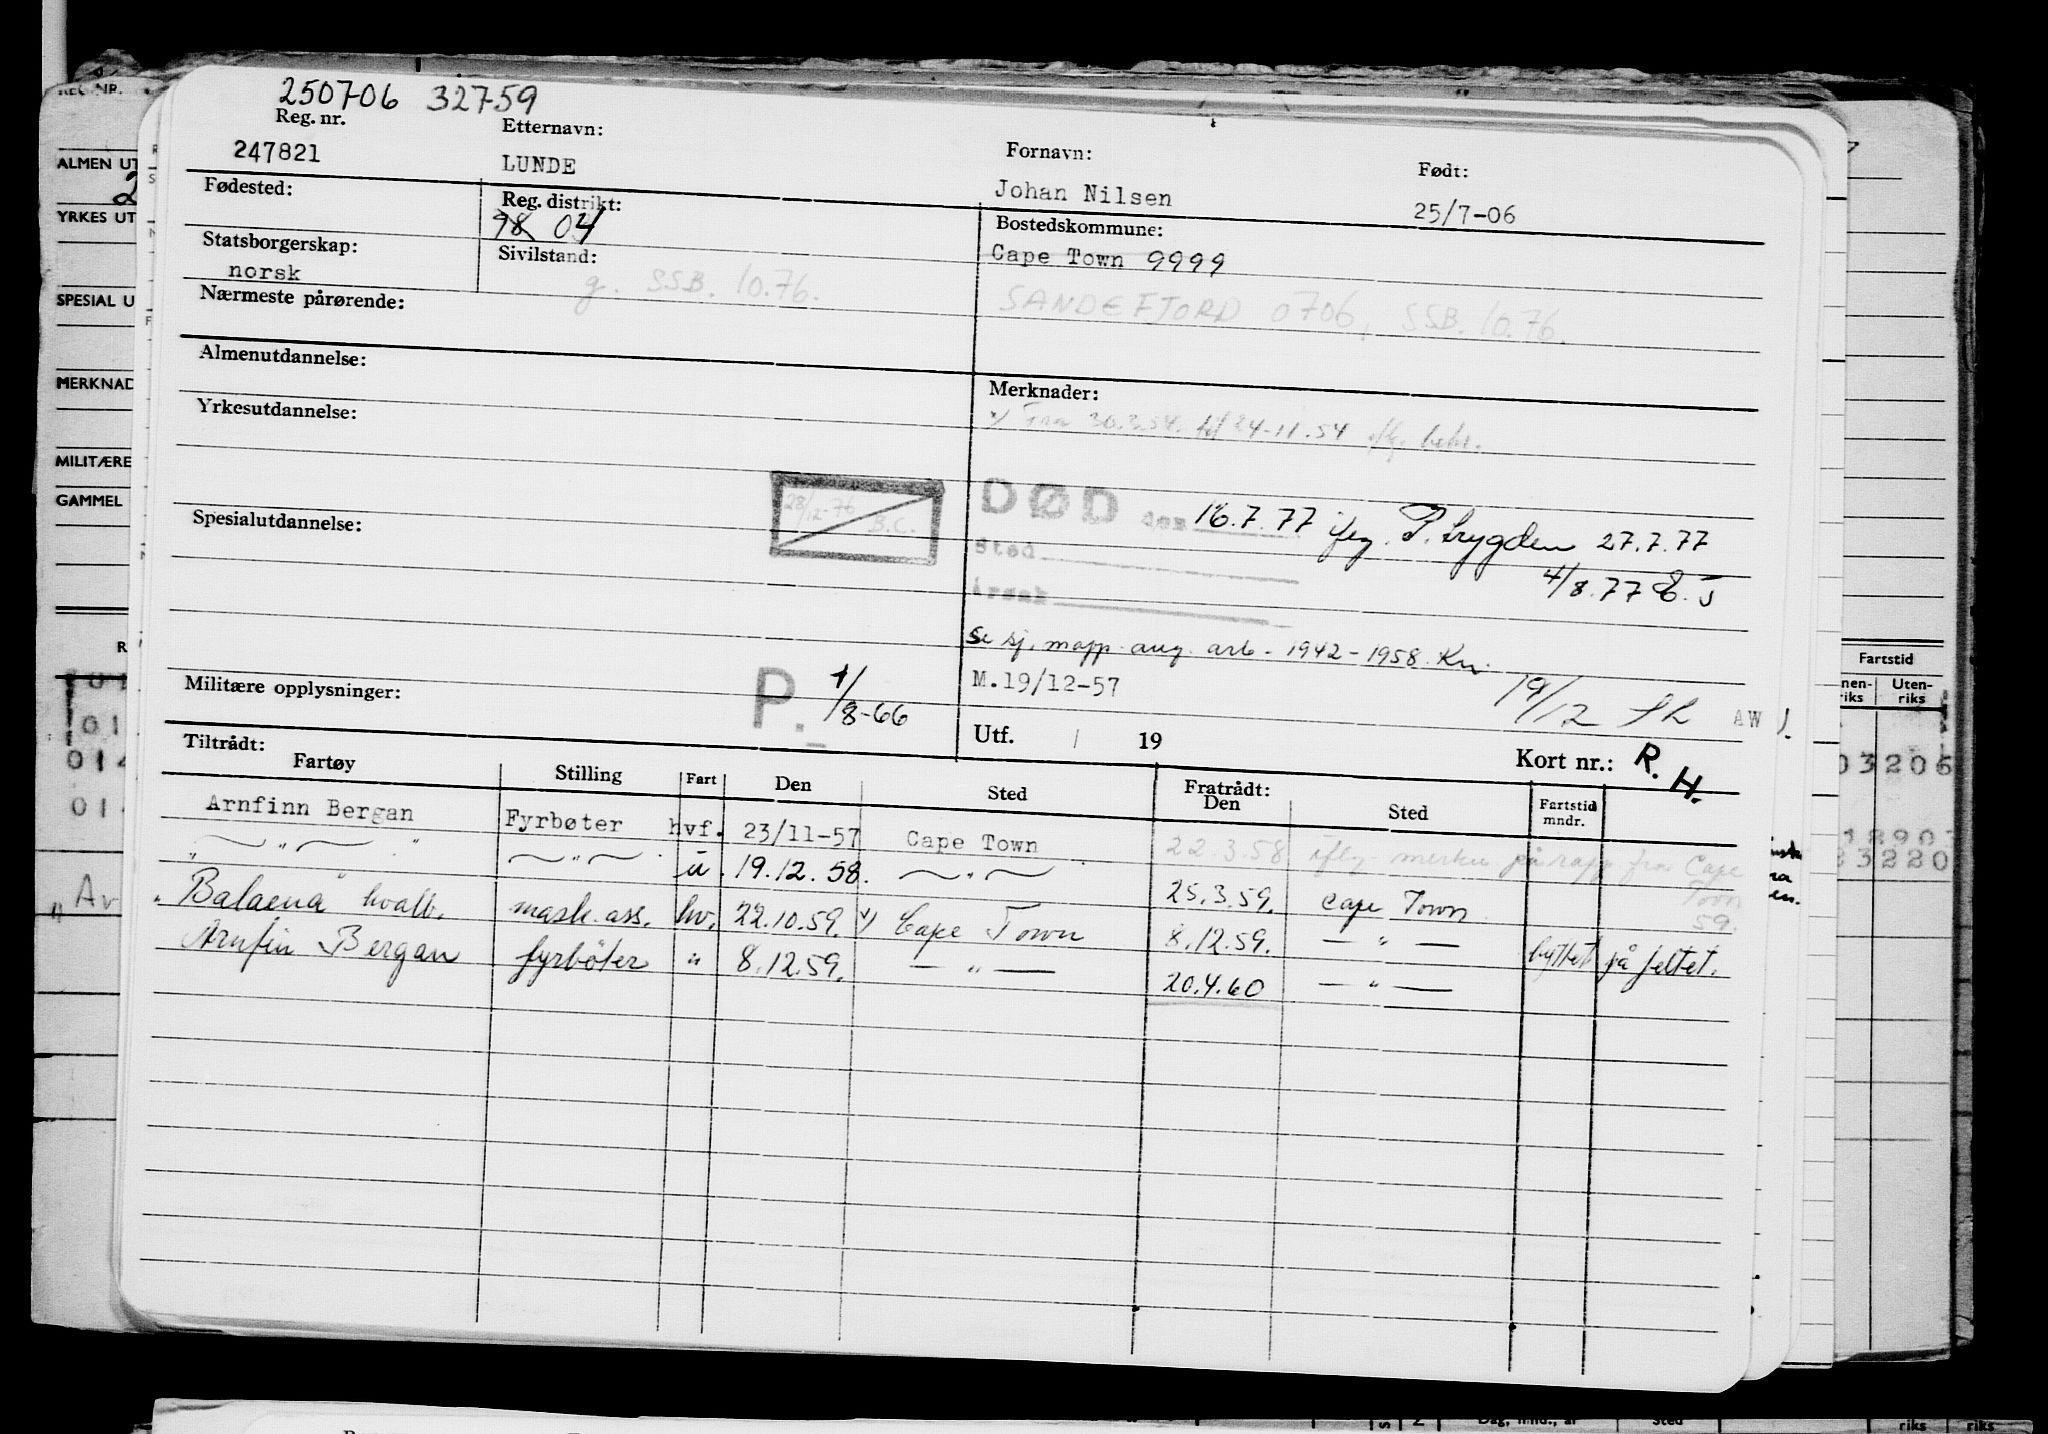 250706 32759
Reg. nr. Etternavn: Fornavn: Født:
247821 LUNDE Johan Nilsen 25/7-06
Fødested: Reg. distrikt: Bostedskommune:
98 04 Cape Town 9999
Statsborgerskap: Sivilstand:
norsk g. SSB. 10.76. SANDEFJORD 0706, SSB. 10.76.
Nærmeste pårørende:
Almenutdannelse: Merknader:
x) Fra 30.3.54. til 24-11.54
Yrkesutdannelse:
28/12-76 B.C.
DØD den 16.7.77 iflg. P. trygden 27.7.77
Spesialutdannelse: Sted
4/8.77
Årsak
Se sj. mapp. ang. arb. 1942-1958. Kn.
Militære opplysninger: P. 1/8-66 M.19/12-57 19/12 AW
Utf. / 19 Kort nr.: R.H.
Tiltrådt: Fratrådt:
Fartøy Stilling Fart Den Sted Den Sted Fartstid mndr.
Arnfinn Bergan Fyrbøter hvf. 23/11-57 Cape Town 22.3.58 iflg. merkn på rapp. fra Cape Town 59.
— " — " — " — u. 19.12.58. — " — 25.3.59. Cape Town
Balaena hvalk. mask. ass. hv. 22.10.59. x) Cape Town 8.12.59. — " — byttet på feltet.
Arnfin Bergan fyrbøter " 8.12.59. — " — 20.4.60 — " —
REG. NR.
ALMEN UT
2
YRKES UT
SPESIAL U
MERKNAD
MILITÆRE
GAMMEL
014
014
" Av
Fartstid
Uten-
riks
03206
18903
33220
Dag, mnd., år Sted riks riks